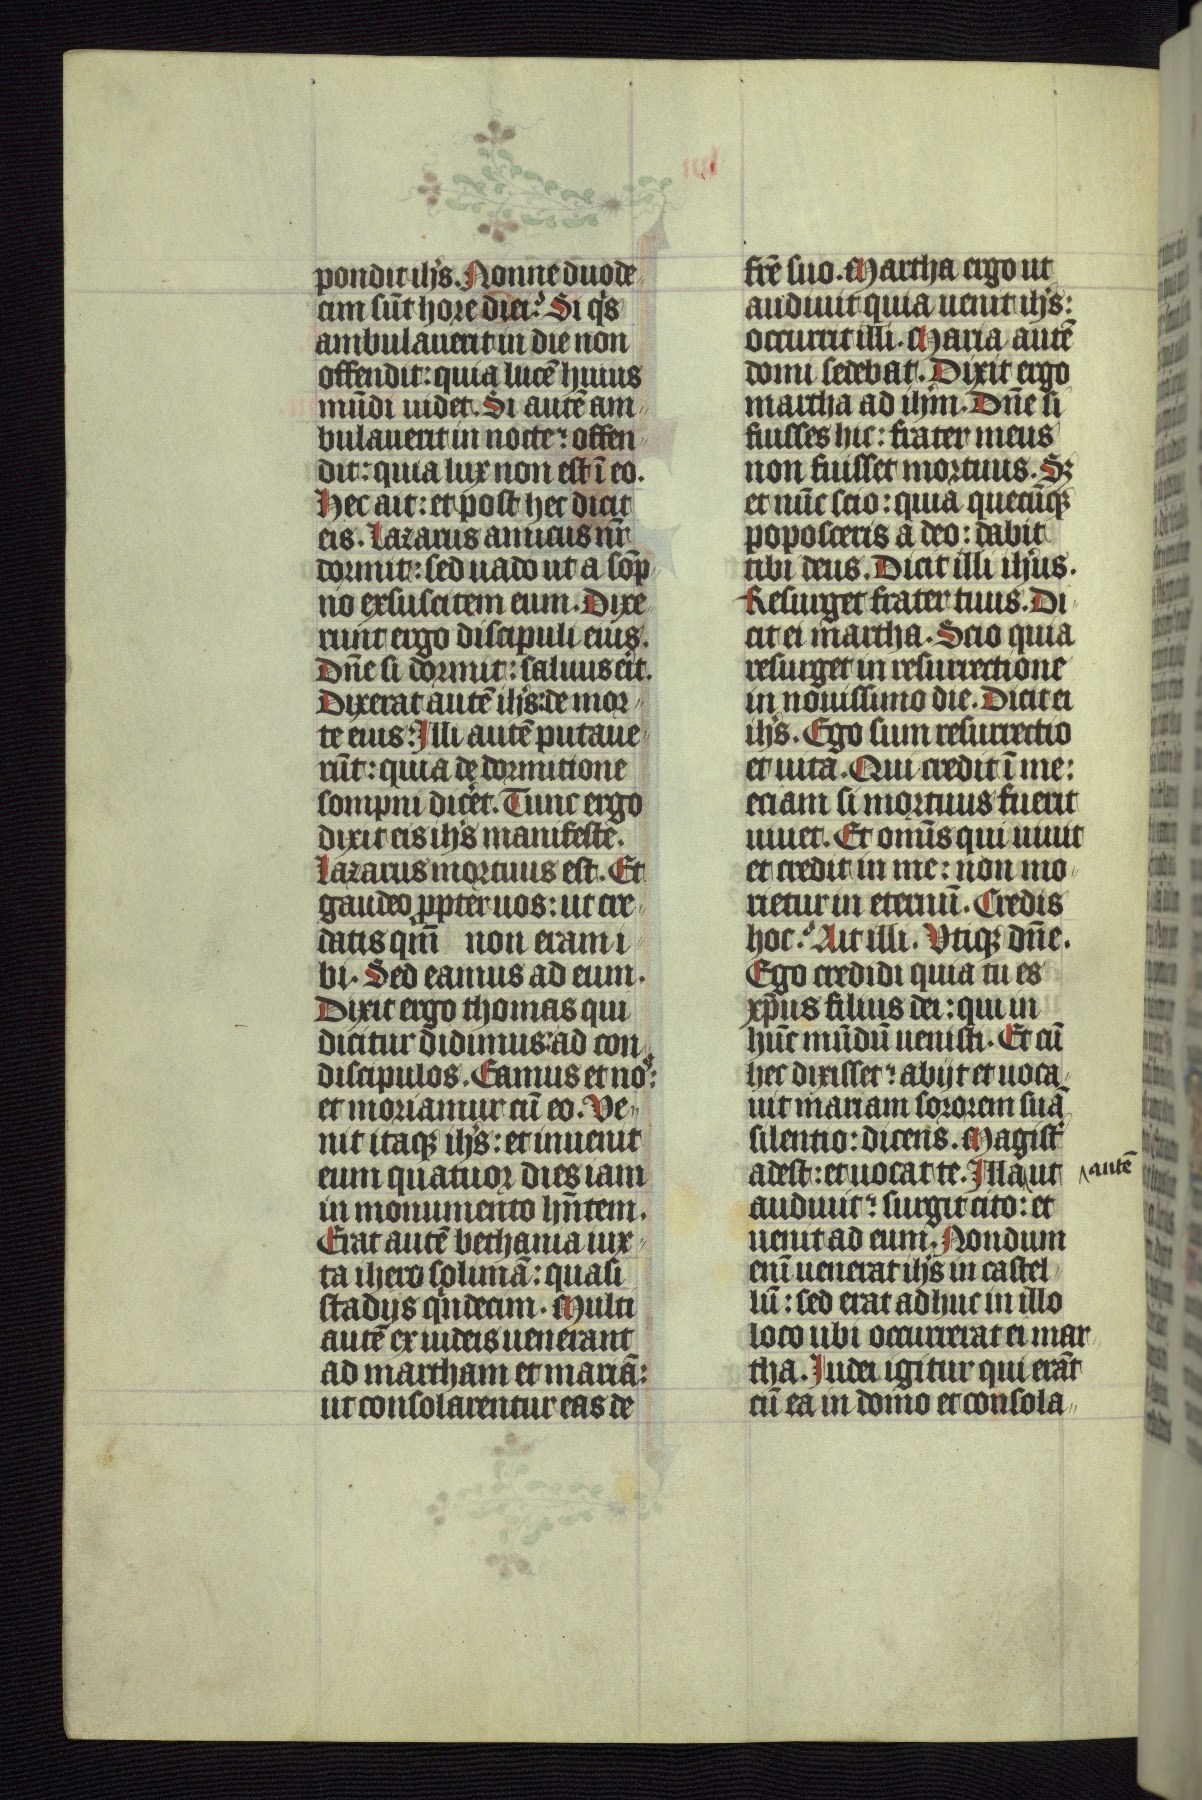 pondit ihs. Nonne duode
cim sūt hore diei? Si qͥs
ambulauerit in die non
offendit: quia lucē huius
mūdi uidet. Si autē am„
bulauerit in nocte: offen„
dit: quia lux non est ī eo.
Hec ait: et post hec dicit
eis. Lazarus amicus nr̄
dormit: sed uado ut a sōp„
no exsuscitem eum. Dixe„
runt ergo discipuli eius.
Dn̄e si dormit: saluus eīt.
Dixerat autē ihs: de mor„
te eius: Illi autē putaue„
rūt: quia de dormitione
sompni dicēt. Tunc ergo
dixit eis ihs manifeste.
Lazarus mortuus est. Et
gaudeo ꝓpter uos: ut cre„
datis qm̄ non eram i„
bi. Sed eamus ad eum.
Dixit ergo thomas qui
dicitur didimus: ad con„
discipulos. Eamus et noˢ:
et moriamur cū eo. Ve„
nit itaqꝫ ihs: et inuenit
eum quatuor dies iam
in monumento hn̄tem.
Erat autē bethania iux„
ta ihero solimā: quasi
stadijs qͥndecim. Multi
autē ex iudeis uenerant
ad martham et mariā:
ut consolarentur eas de
frē suo. Martha ergo ut
audiuit quia uenit ihs:
occurrit illi. Maria autē
domi sedebat. Dixit ergo
martha ad ihm. Dn̄e si
fuisses hic: frater meus
non fuisset mortuus. Sꝫ
et nūc scio: quia quecūqꝫ
poposceris a deo: dabit
tibi deus. Dicit illi ihus.
Resurget frater tuus. Di„
cit ei martha. Scio quia
resurget in resurrectione
in nouissimo die. Dicit ei
ihs. Ego sum resurrectio
et uita. Qui credit ī me:
eciam si mortuus fuerit
uiuet. Et omīs qui uiuit
et credit in me: non mo„
rietur in eternū. Credis
hoc? Ait illi. Vtiqꝫ dn̄e.
Ego credidi quia tu es
xp̄us filius dei: qui in
hūc mūdū uenisti. Et cū
hec dixisset: abijt et uoca„
uit mariam sororem suā
silentio: dicens. Magist͛
adest: et uocat te. Illa ut ^autē
audiuit: surgit cito: et
uenit ad eum. Nondum
enī uenerat ihs in castel„
lū: sed erat adhuc in illo
loco ubi occurrerat ei mar„
tha. Iudei igitur qui erāt
cū ea in domo et consola„